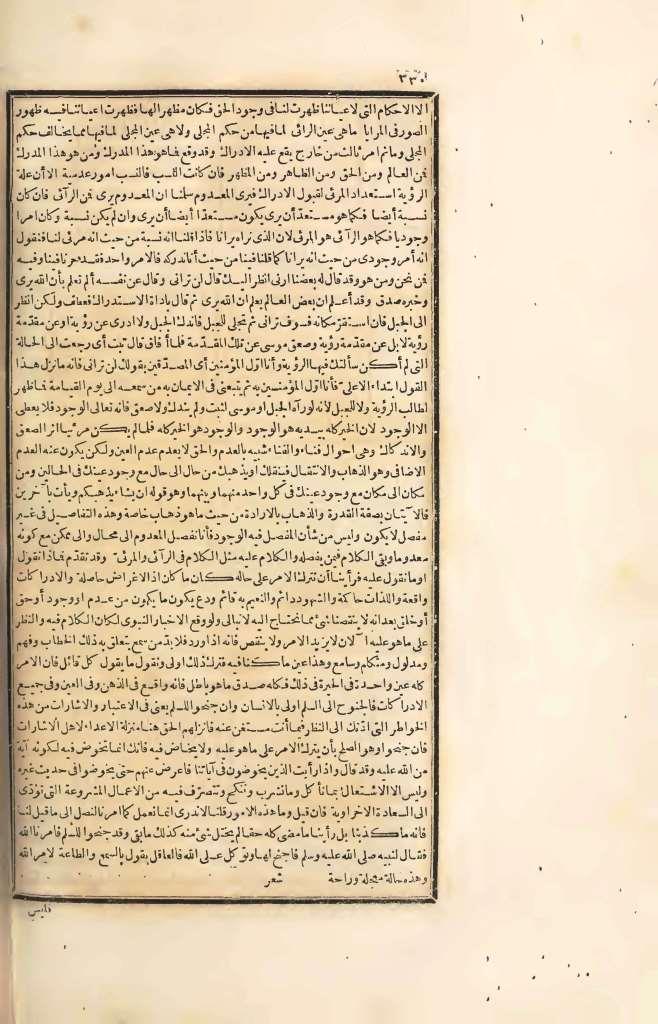 ٣٣٠
الا الاحكام التى لاعياننا ظهرت لنا فى وجود الحق فكان مظهرا لها فظهرت اعياننا فيه ظهور
الصور فى المرايا ما هى عين الرائى لما فيها من حكم المجلى ولا هى عين المجلى لما فيها مما يخالف حكم
المجلى وما ثم امر ثالث من خارج يقع عليه الادراك وقد وقع فما هو هذا المدرك ومن هو هذا المدرك
فمن العالم ومن الحق ومن الظاهر ومن المظهر فان كانت النسب فالنسب امور عدمية الا أن علة
الرؤية استعداد المرئى لقبول الادراك فيرى المعدوم سلمنا ان المعدوم يرى فمن الرآئى فان كان
نسبة أيضا فكما هو مستعد أن يرى يكون مستعدا أيضا أن يرى وان لم يكن نسبة وكان امرا
وجوديا فكما هو الرآئى هو المرئى لان الذى نراه يرانا فاذا قلنا انه نسبة من حيث انه مرئى لنا فنقول
انه أمر وجودى من حيث انه يرانا كما قلنا فينا من حيث أنا ندركه فالامر واحد فقد حرنا فينا وفيه
فمن نحن ومن هو وقد قال له بعضنا ارنى انظر اليك قال لن ترانى وقال عن نفسه ألم تعلم بأن الله يرى
وخبره صدق وقد أعلم ان بعض العالم يعلم ان الله يرى ثم قال باداة الاستدراك فعطف ولكن انظر
الى الجبل فان استقر مكانه فسوف ترانى ثم تجلى للجبل فاندك الجبل ولا ادرى عن رؤية او عن مقدمة
رؤية لا بل عن مقدمة رؤية وصعق موسى عن تلك المقدمة فلما أفاق قال تبت أى رجعت الى الحالة
التى لم أكن سألتك فيها الرؤية وأنا اول المؤمنين أى المصدقين بقولك لن ترانى فانه ما نزل هذا
القول ابتداء الا على فأنا اول المؤمنين به ثم يتبعنى فى الايمان به من سمعه الى يوم القيامة فما ظهر
لطالب الرؤية ولا للجبل لأنه لو رآه الجبل او موسى لثبت ولم يندك ولا صعق فانه تعالى الوجود فلا يعطى
الا الوجود لان الخير كله بيديه هو الوجود والوجود هو الخير كله فلما لم يكن مرئيا اثر الصعق
والاندكاك وهى احوال فناء والفناء شبيه بالعدم والحق لا يعدم عدم العين ولكن يكون عنه العدم
الاضافى وهو الذهاب والانتقال فينقلك او يذهبك من حال الى حال مع وجود عينك فى الحالين ومن
مكان الى مكان مع وجود عينك فى كل واحد منهما وبينهما وهو قوله ان يشاء يذهبكم ويأت بآخرين
فالاتيان بصفة القدرة والذهاب بالارادة من حيث ما هو ذهاب خاصة وهذه التفاصيل فى غير
مفصل لا يكون وليس من شأن المفصل فيه الوجود فأنا نفصل المعدوم الى محال والى ممكن مع كونه
معدوما وبقى الكلام فيمن يفصله والكلام عليه مثل الكلام فى الرآئى والمرئى وقد تقدم فماذا نقول
او ما نقول عليه فرأينا أن نترك الامر على حاله كان ما كان اذ الاغراض حاصلة والادراكات
واقعة واللذات حاكمة والشهود دائم والنعيم به قائم ودع يكون ما يكون من عدم او وجود أو حق
أو خلق بعد انه لا ينقصنا شئ مما نحتاج اليه لا نبالى ولو وقع الاخبار النبوى لكان الكلام فيه والنظر
على ما هو عليه الآن لا يزيد الامر ولا ينتقص فانه اذا ورد فلا بد من سمع يتعلق به ذلك الخطاب وفهم
ومدلول ومتكلم وسامع وهذا عين ما كنا فيه فترك ذلك اولى ونقول ما يقول كل قائل فان الامر
كله عين واحدة فى الحيرة فى ذلك فكله صدق ما هو باطل فانه واقع فى الذهن وفى العين وفى جميع
الادراكات فالجنوح الى السلم اولى بالانسان وان جنحوا للسلم يعنى فى الاعتبار والاشارات من هذه
الخواطر التى ادتك الى النظر فيما أنت مستغن عنه فانزلهم الحق هنا منزلة الاعداء لاهل الاشارات
فان جنحوا وهو الصلح بأن يترك الامر على ما هو عليه ولا يخاض فيه فانك انما تخوض فيه لكونه آية
من الله عليه وقد قال واذا رأيت الذين يخوضون فى آياتنا فاعرض عنهم حتى يخوضوا فى حديث غيره
وليس الا الاشتغال بما نأكل وما نشرب وننكح ونتصرف فيه من الاعمال المشروعة التى تؤدى
الى السعادة الاخراوية فان قيل وما هذه الامور قلنا لا ندرى انما نعمل كما امرنا لنصل الى ما قيل لنا
فانه ما كذبنا بل رأينا ما مضى كله حقا لم يختل شئ منه كذلك ما بقى وقد جنحوا للسلم فأمرنا الله
فقال لنبيه صلى الله عليه وسلم فاجنح لها وتوكل على الله فالعاقل يقول بالسمع والطاعة لامر الله
وهذه حالة معجلة وراحة شعر
فليس